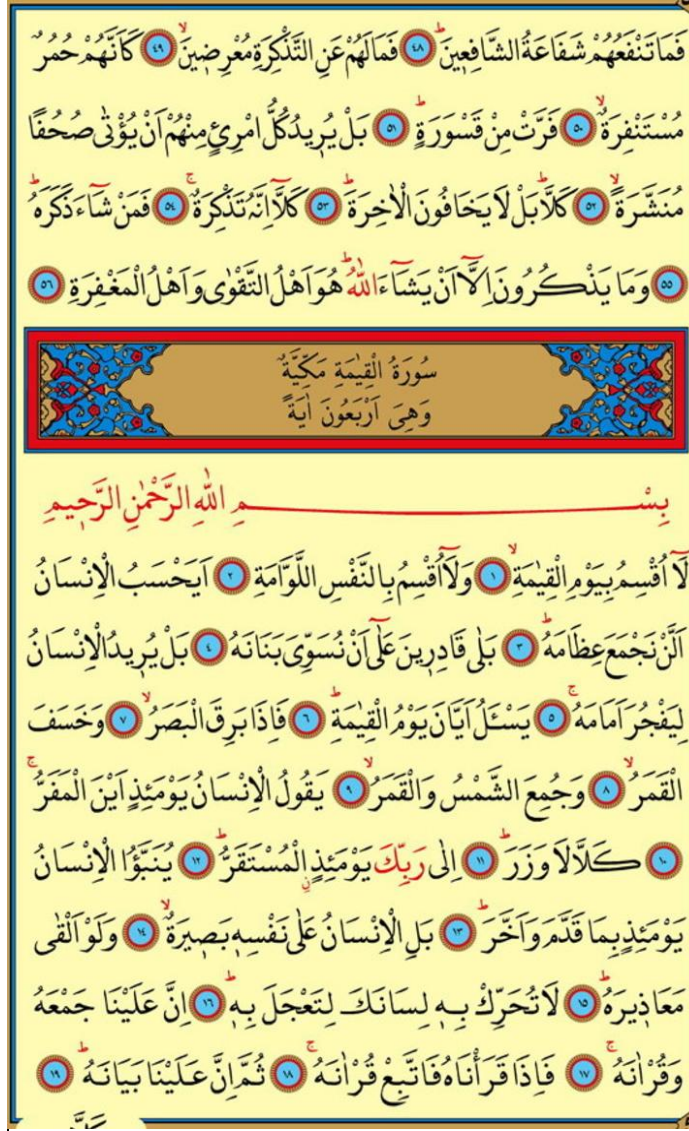 فَمَا تَنْفَعُهُمْ شَفَاعَةُ الشَّافِعِينَۜ ﴿٤٨﴾ فَمَا لَهُمْ عَنِ التَّذْكِرَةِ مُعْرِضِينَۙ ﴿٤٩﴾ كَاَنَّهُمْ حُمُرٌ
مُسْتَنْفِرَةٌۙ ﴿٥٠﴾ فَرَّتْ مِنْ قَسْوَرَةٍۜ ﴿٥١﴾ بَلْ يُرِيدُ كُلُّ امْرِئٍ مِنْهُمْ اَنْ يُؤْتٰى صُحُفًا
مُنَشَّرَةًۙ ﴿٥٢﴾ كَلَّاۜ بَلْ لَا يَخَافُونَ الْاٰخِرَةَۜ ﴿٥٣﴾ كَلَّٓا اِنَّهُ تَذْكِرَةٌۚ ﴿٥٤﴾ فَمَنْ شَٓاءَ ذَكَرَهُۜ
﴿٥٥﴾ وَمَا يَذْكُرُونَ اِلَّٓا اَنْ يَشَٓاءَ اللّٰهُۜ هُوَ اَهْلُ التَّقْوٰى وَاَهْلُ الْمَغْفِرَةِ ﴿٥٦﴾
سُورَةُ الْقِيٰمَةِ مَكِّيَّةٌ
وَهِيَ اَرْبَعُونَ اٰيَةً
بِسْمِ اللّٰهِ الرَّحْمٰنِ الرَّحِيمِ
لَٓا اُقْسِمُ بِيَوْمِ الْقِيٰمَةِۙ ﴿١﴾ وَلَٓا اُقْسِمُ بِالنَّفْسِ اللَّوَّامَةِ ﴿٢﴾ اَيَحْسَبُ الْاِنْسَانُ
اَلَّنْ نَجْمَعَ عِظَامَهُۜ ﴿٣﴾ بَلٰى قَادِرِينَ عَلٰٓى اَنْ نُسَوِّيَ بَنَانَهُ ﴿٤﴾ بَلْ يُرِيدُ الْاِنْسَانُ
لِيَفْجُرَ اَمَامَهُۚ ﴿٥﴾ يَسْـَٔلُ اَيَّانَ يَوْمُ الْقِيٰمَةِۜ ﴿٦﴾ فَاِذَا بَرِقَ الْبَصَرُۙ ﴿٧﴾ وَخَسَفَ
الْقَمَرُۙ ﴿٨﴾ وَجُمِعَ الشَّمْسُ وَالْقَمَرُۙ ﴿٩﴾ يَقُولُ الْاِنْسَانُ يَوْمَئِذٍ اَيْنَ الْمَفَرُّۚ
﴿١٠﴾ كَلَّا لَا وَزَرَۜ ﴿١١﴾ اِلٰى رَبِّكَ يَوْمَئِذٍ ࣙالْمُسْتَقَرُّۜ ﴿١٢﴾ يُنَبَّؤُا الْاِنْسَانُ
يَوْمَئِذٍ بِمَا قَدَّمَ وَاَخَّرَۜ ﴿١٣﴾ بَلِ الْاِنْسَانُ عَلٰى نَفْسِهِ بَصِيرَةٌۙ ﴿١٤﴾ وَلَوْ اَلْقٰى
مَعَاذِيرَهُۜ ﴿١٥﴾ لَا تُحَرِّكْ بِهِ لِسَانَكَ لِتَعْجَلَ بِهِۜ ﴿١٦﴾ اِنَّ عَلَيْنَا جَمْعَهُ
وَقُرْاٰنَهُۚ ﴿١٧﴾ فَاِذَا قَرَأْنَاهُ فَاتَّبِعْ قُرْاٰنَهُۚ ﴿١٨﴾ ثُمَّ اِنَّ عَلَيْنَا بَيَانَهُۜ ﴿١٩﴾